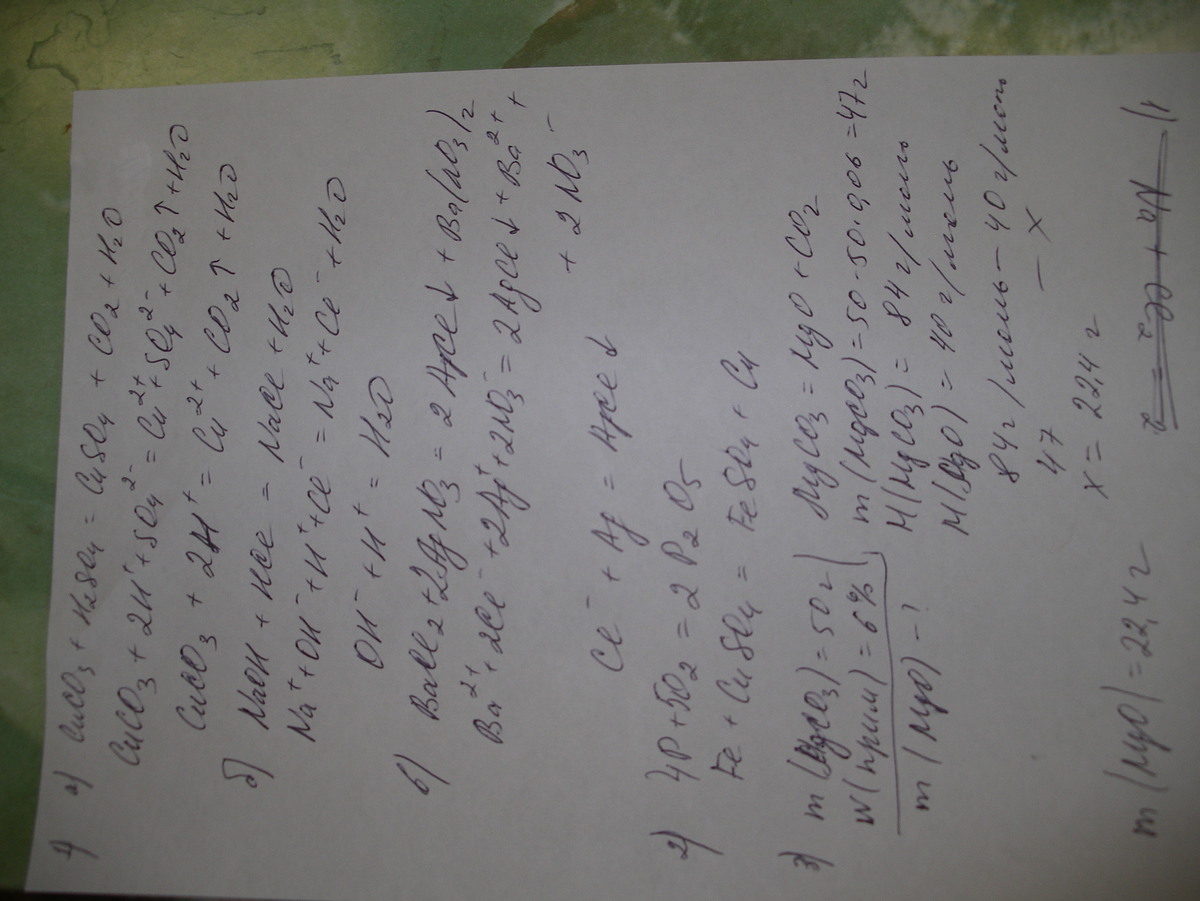 1) а) CuCO₃ + H₂SO₄ = CuSO₄ + CO₂ + H₂O
CuCO₃ + 2H⁺ + SO₄²⁻ = Cu²⁺ + SO₄²⁻ + CO₂↑ + H₂O
CuCO₃ + 2H⁺ = Cu²⁺ + CO₂↑ + H₂O
б) NaOH + HCl = NaCl + H₂O
Na⁺ + OH⁻ + H⁺ + Cl⁻ = Na⁺ + Cl⁻ + H₂O
OH⁻ + H⁺ = H₂O
в) BaCl₂ + 2AgNO₃ = 2AgCl↓ + Ba(NO₃)₂
Ba²⁺ + 2Cl⁻ + 2Ag⁺ + 2NO₃⁻ = 2AgCl↓ + Ba²⁺ +
+ 2NO₃⁻
Cl⁻ + Ag = AgCl↓
2) 4P + 5O₂ = 2P₂O₅
Fe + CuSO₄ = FeSO₄ + Cu
3) m(MgCO₃) = 50 г MgCO₃ = MgO + CO₂
w(прим) = 6% m(MgCO₃) = 50 - 50·0,06 = 47 г
m(MgO) - ? M(MgCO₃) = 84 г/моль
M(MgO) = 40 г/моль
84 г/моль — 40 г/моль
47 — x
x = 22,4 г
m(MgO) = 22,4 г